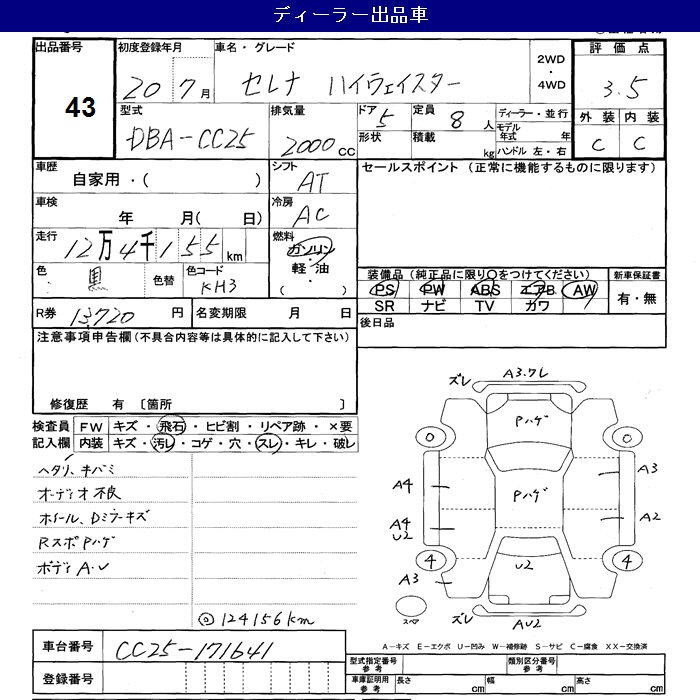 ディーラー出品車
出品番号 初度登録年月 車名・グレード 評価点
43 20 7月 セレナ ハイウェイスター 2WD・4WD 3.5
型式 排気量 ドア 5 定員 8人 ディーラー・並行 外装 内装
DBA-CC25 2000cc 形状 積載 kg モデル年式 年 C C
ハンドル 左・右
車歴 シフト セールスポイント (正常に機能するものに限ります)
自家用・( ) AT
車検 冷房
年 月( 日) AC
走行 燃料
12万4千155km ガソリン・軽・油
色 黒 色替 色コード KH3 ( )
装備品 (純正品に限り○をつけてください) 新車保証書
PS PW ABS エアB AW 有・無
SR ナビ TV カワ
R券 13,720円 名変期限 月 日 後日品
注意事項申告欄(不具合内容等は具体的に記入して下さい)
修復歴 有 〔箇所 〕
検査員 FW キズ・飛石・ヒビ割・リペア跡・×要
記入欄 内装 キズ・汚レ・コゲ・穴・スレ・キレ・破レ
ヘタリ、キバミ
オーディオ不良
ホイール、Dミラーキズ
RスポPハゲ
ボディA・U
◎124156km
ズレ A3.7レ
Pハゲ
0 0
A4 Pハゲ A3
A4 A2
U2
4 U2 4
A3
スペア ズレ AU2
A―キズ E―エクボ U―凹み W―補修跡 S―サビ C―腐食 XX―交換済
車台番号 CC25-171641
登録番号
型式指定番号 参考 類別区分番号 参考
車庫証明用 参考 長さ cm 幅 cm 高さ cm